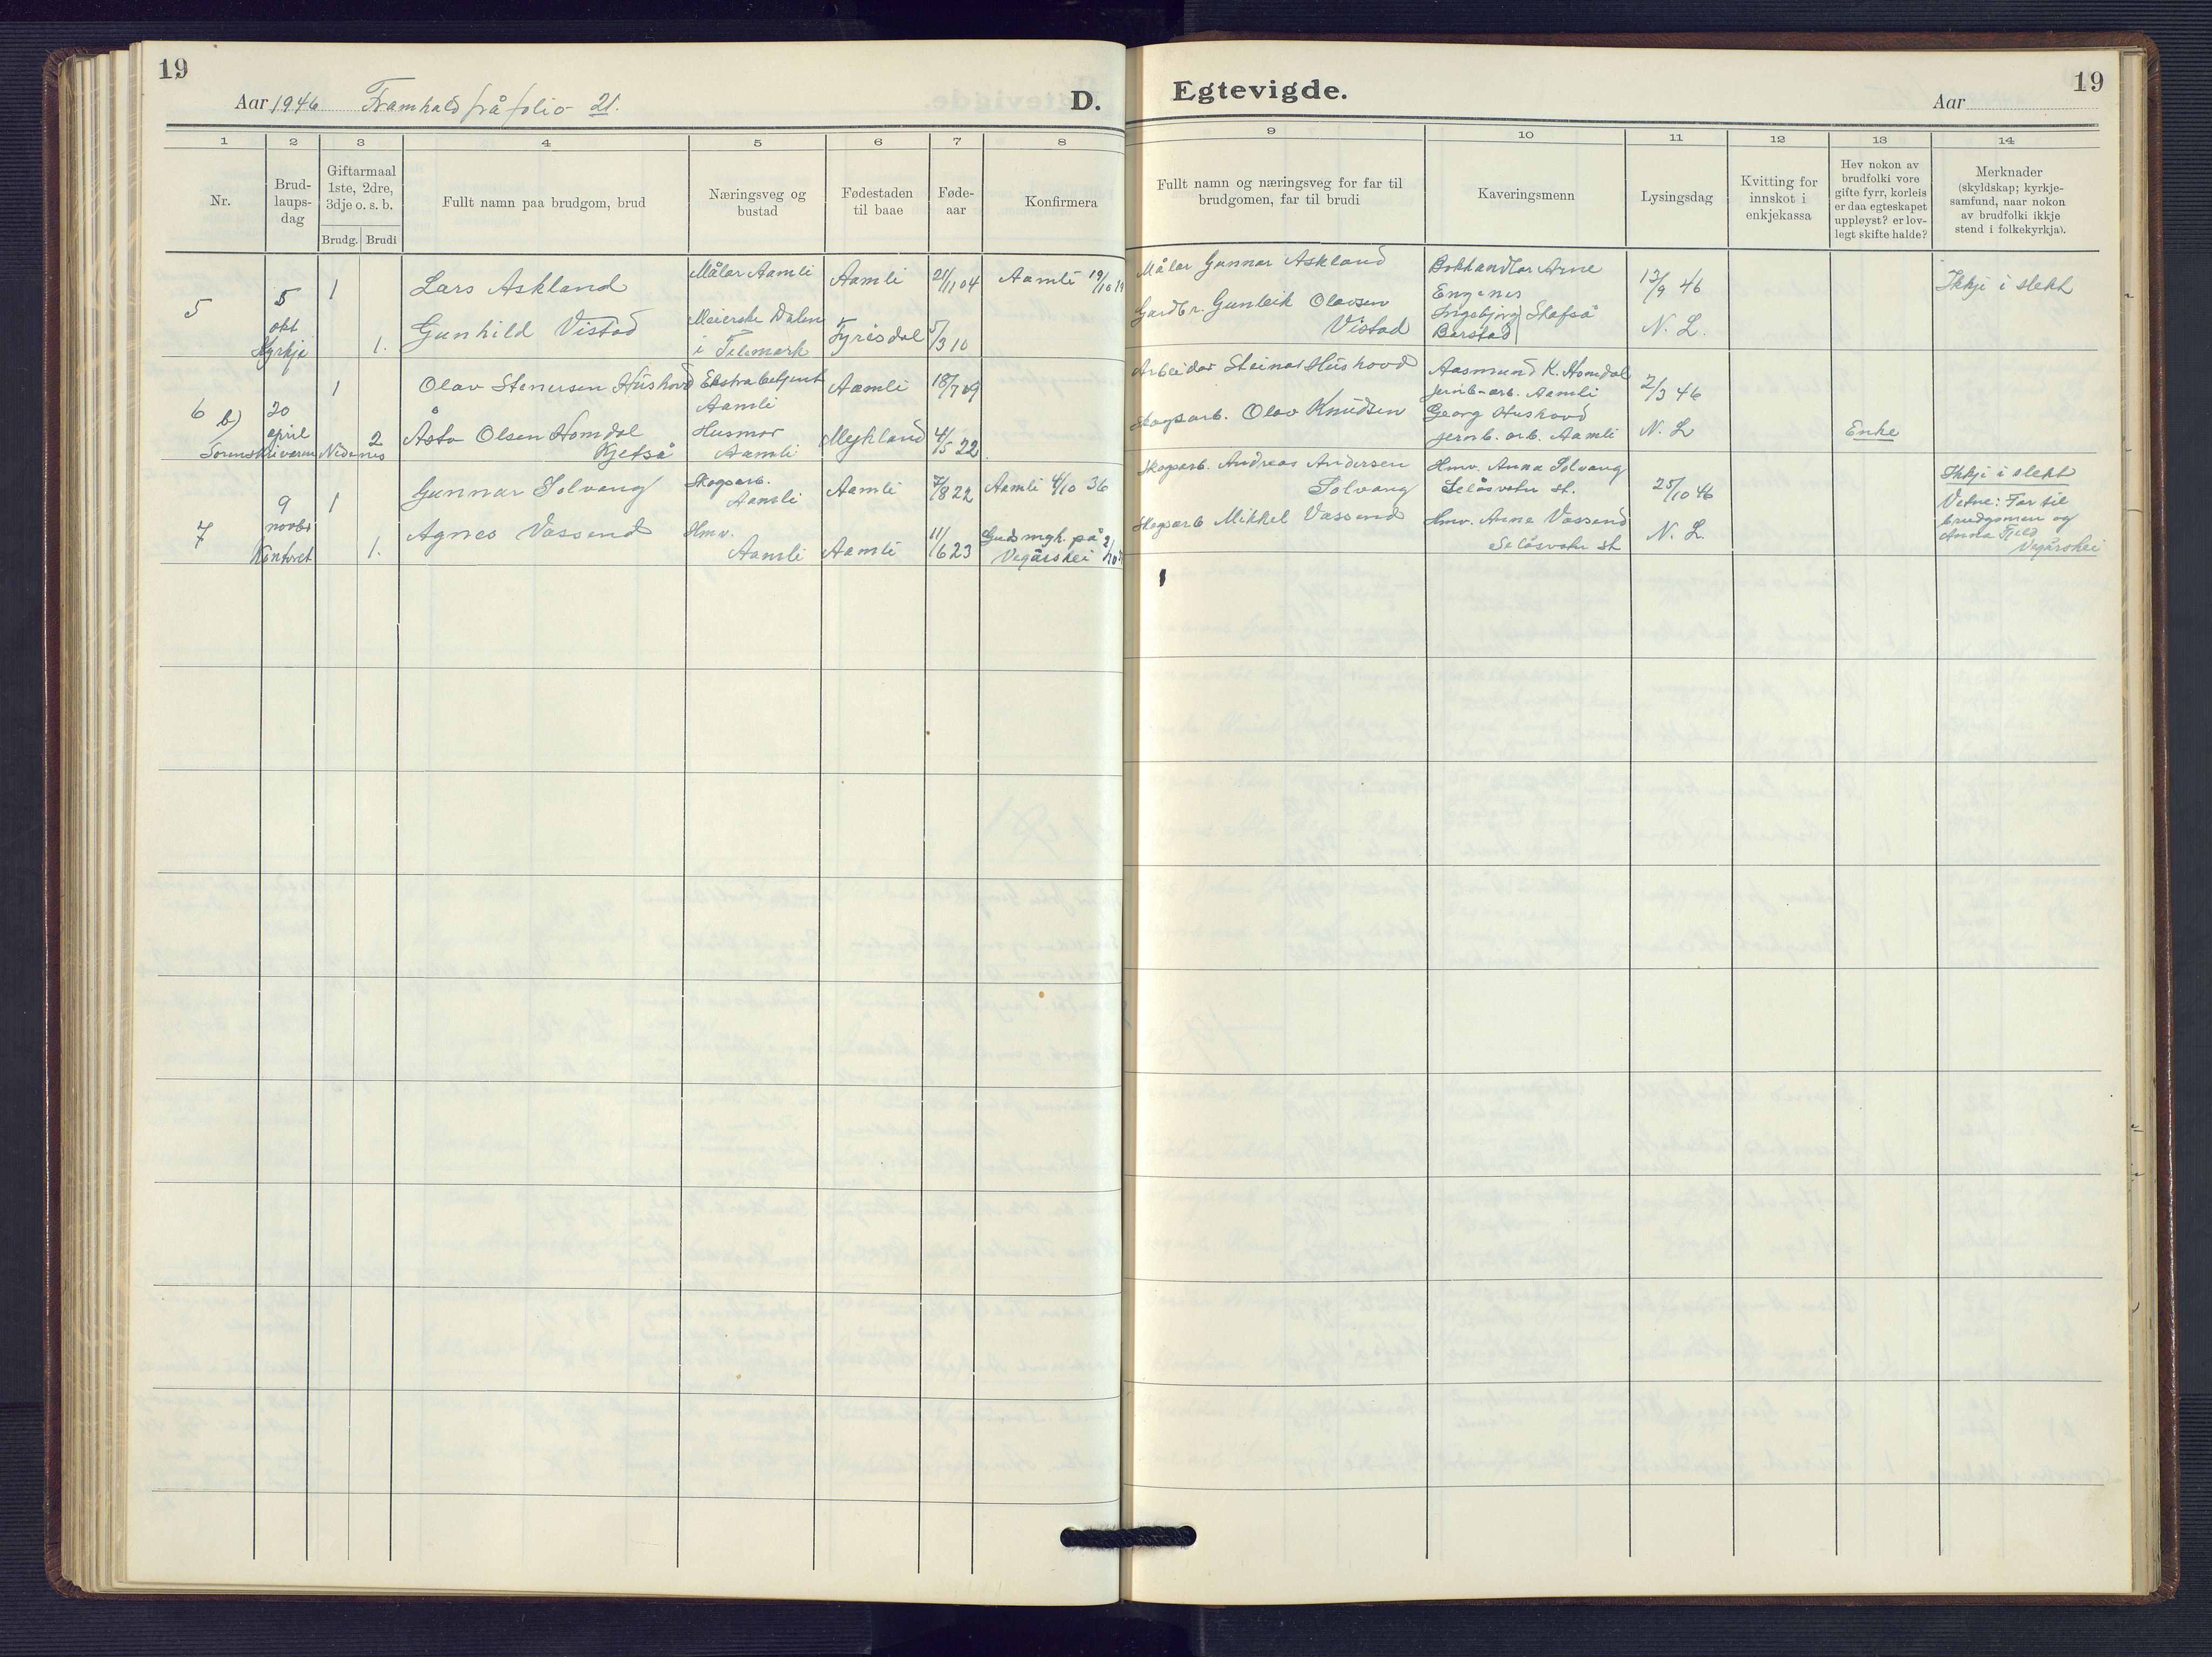 19
Aar 1946 Framhald frå folio 21.
D.
Egtevigde.
Aar
19
1 2 3 4 5 6 7 8 9 10 11 12 13 14
Nr.
Brud-
laups-
dag
Giftarmaal
1ste, 2dre,
3dje o. s. b.
Brudg. Brudi
Fullt namn paa brudgom, brud
Næringsveg og
bustad
Fødestaden
til baae
Føde-
aar
Konfirmera
Fullt namn og næringsveg for far til
brudgomen, far til brudi
Kaveringsmenn
Lysingsdag
Kvitting for
innskot i
enkjekassa
Hev nokon av
brudfolki vore
gifte fyrr, korleis
er daa egteskapet
uppløyst? er lov-
legt skifte halde?
Merknader
(skyldskap; kyrkje-
samfund, naar nokon
av brudfolki ikkje
stend i folkekyrkja).
5
5
okt
Kyrkje
1
1.
Lars Askland
Gunhild Vistad
Målar Aamli
Meierske Dalen
i Telemark
Aamli
Fyrisdal
21/11 04
5/3 10
Aamli 19/10 19
Målar Gunnar Askland
Gardbr. Gunleik Olavsen
Vistad
Bokhandlar Arne
Engenes
Ingebjørg Skafså
Barstad
13/9 46
N. L.
Ikkje i slekt
6 b)
20
april
Sorenskrivaren Nedenes
1
2
Olav Stenersen Hushovd
Åsta Olsen Homdal
Kjetså
Ekstrabetjent
Aamli
Husmor
Aamli
Aamli
Mykland
18/7 09
4/5 22
Arbeidar Steinar Hushovd
Skogsarb. Olav Knudsen
Aasmund K. Homdal
jernb-arb. Aamli
Georg Hushovd
jernb. arb. Aamli
2/3 46
N. L
Enke
7
9
novbr
Kontoret
1
1.
Gunnar Solvang
Agnes Vassend
Skogsarb.
Aamli
Hmv.
Aamli
Aamli
Aamli
7/8 22
11/6 23
Aamli 4/10 36
Gudsmgh. på
Vegårshei
Skogsarb. Andreas Andersen
Solvang
Skogsarb Mikkel Vassend
Hmv. Anna Solvang
Selåsvatn st.
Hmv. Anna Vassend
Selåsvatn st
25/10 46
N. L.
Ikkje i slekt
Vitne: Far til
brudgomen og
Anna Fjeld
Vegårshei